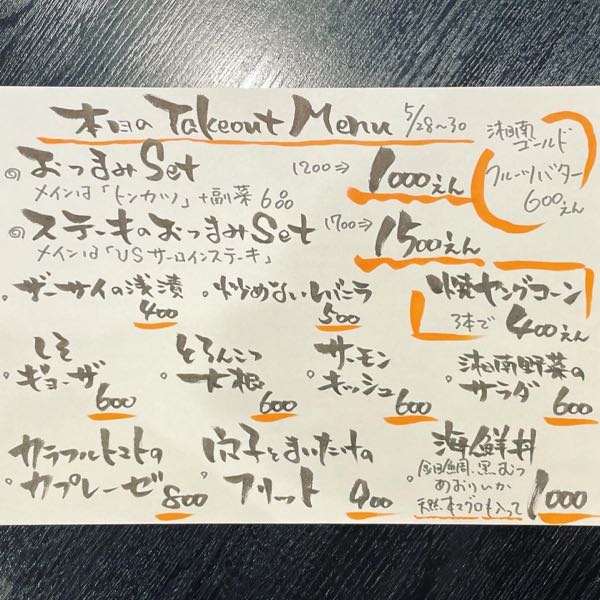 本日の Takeout Menu 5/28~30
湘南
ゴールド
フルーツバター
600えん
おつまみSet 1200⇒ 1000えん
メインは「トンカツ」+副菜
ステーキのおつまみSet 1700⇒ 1500えん
メインは「USサーロインステーキ」
・ザーサイの浅漬 400
・炒めないレバニラ 500
焼ヤングコーン
3本で 400えん
・しそギョーザ 600
・とろんこつ大根 600
・サーモンキッシュ 600
・湘南野菜のサラダ 600
・カラフルトマトのカプレーゼ 800
・穴子とまいたけのフリット 900
・海鮮丼
金目鯛、黒むつ
あおりいか
天然本マグロも入って 1000